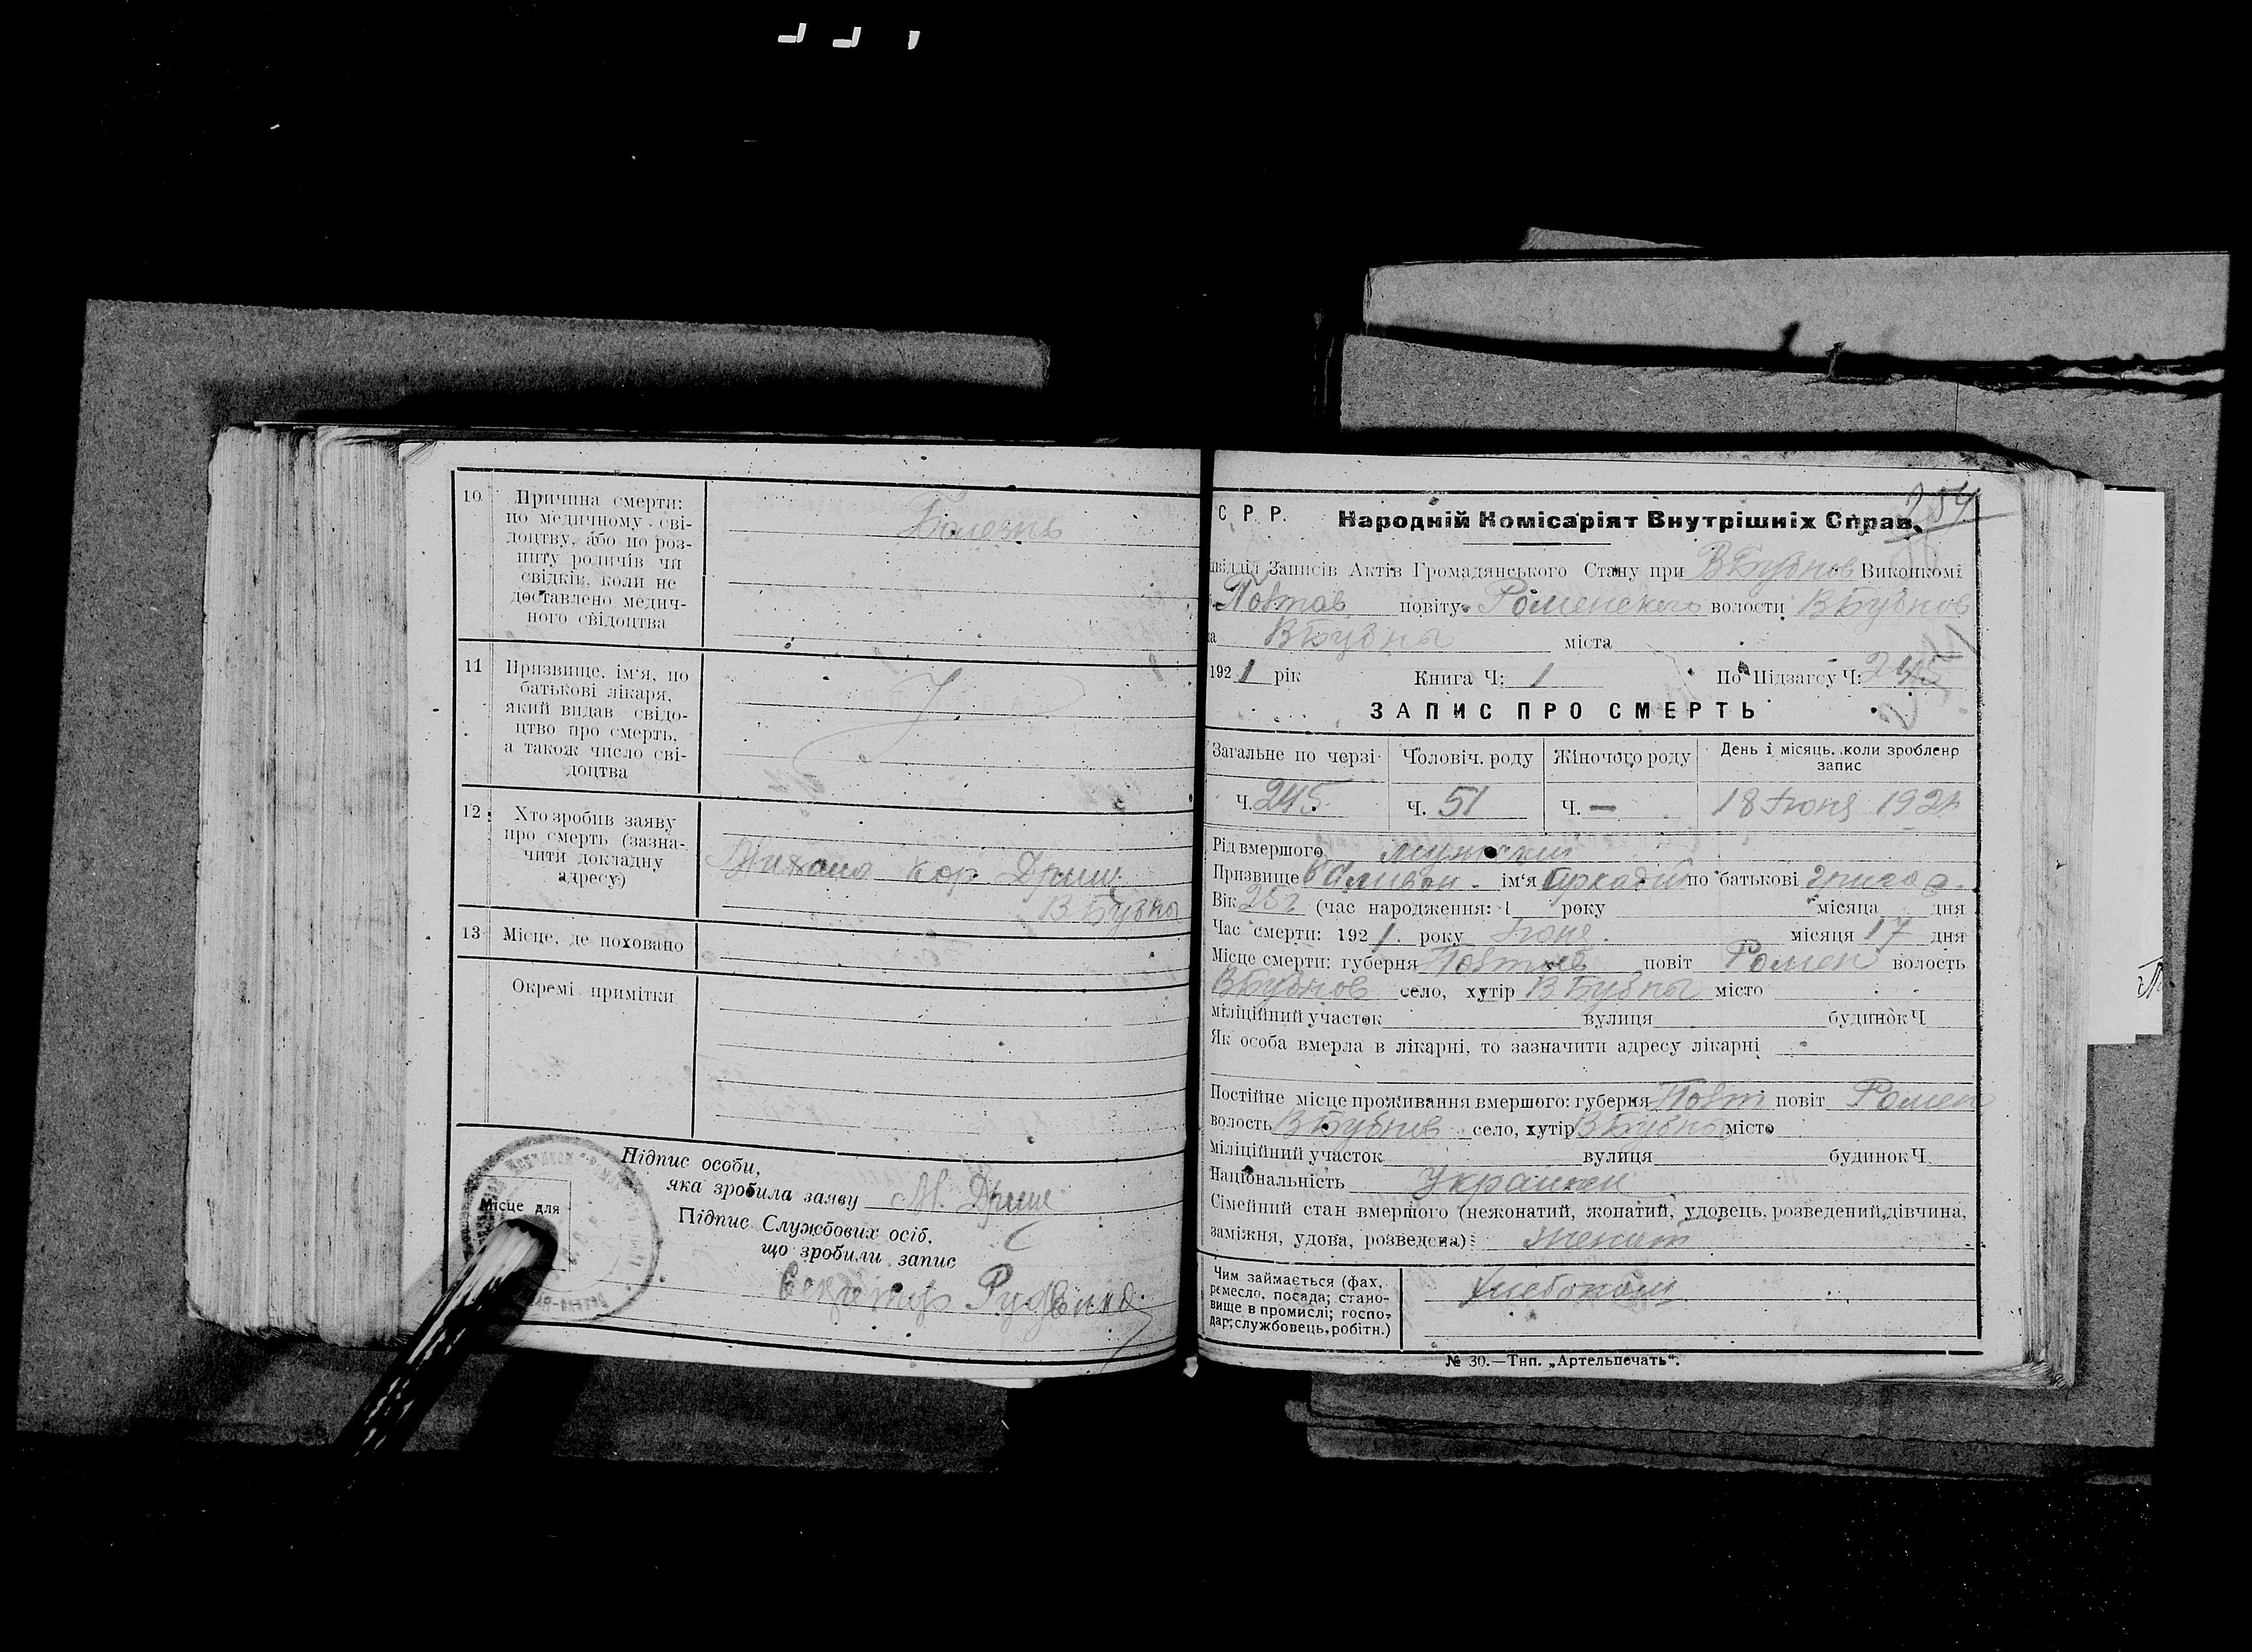 10
Причина смерти:
по медичному сві-
доцтву, або по роз-
питу родичів чи
свідків, коли не
доставлено медич-
ного свідоцтва
Болезнь
11
Призвище, ім'я, по
батькові лікаря,
який видав свідо-
цтво про смерть,
а також число сві-
доцтва
12
Хто зробив заяву
про смерть (зазна-
чити докладну
адресу)
Кор. Дриш
В Бубны
13
Місце, де поховано
Окремі примітки
Підпис особи,
яка зробила заяву М. Дриш
Підпис Службових осіб,
що зробили запис
Місце для
Секретар
С. Р. Р. Народній Комісаріят Внутрішніх Справ.
254
відділ Записів Актів Громадянського Стану при ВБубнов Виконкомі
Полтав повіту Роменского волости ВБубнов
ВБубны міста
1921 рік Книга Ч: 1 По Підзагсу Ч: 245
ЗАПИС ПРО СМЕРТЬ
Загальне по черзі Чоловіч. роду Жіночого роду День і місяць, коли зроблено запис
Ч. 245 Ч. 51 Ч. — 18 Июня 1921
Рід вмершого мужский
Призвище ім'я Аркадий по батькові
Вік 25 г (час народження: 1 року місяца дня
Час смерти: 1921. року Июня. місяця 17 дня
Місце смерти: губерня Полтав повіт Ромен волость
ВБубнов село, хутір ВБубны місто
міліційний участок вулиця будинок Ч
Як особа вмерла в лікарні, то зазначити адресу лікарні
Постійне місце проживання вмершого: губерня Полт повіт Ромен
волость ВБубнов село, хутір ВБубны місто
міліційний участок вулиця будинок Ч
Національність Украинец
Сімейний стан вмершого (нежонатий, жонатий, удовець, розведений, дівчина,
заміжня, удова, розведена): женат
Чим займається (фах,
ремесло, посада; стано-
вище в промислі; госпо-
дар; службовець, робітн.)
Хлебопаш
№ 30.—Тип. „Артельпечать“.